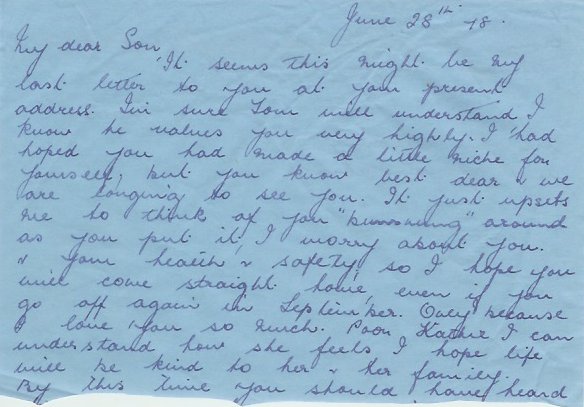 June 28th 78.
My dear Son,
It seems this might be my
last letter to you at your present
address. I'm sure Tom will understand I
know he values you very highly. I had
hoped you had made a little niche for
yourself, but you know best dear & we
are longing to see you. It just upsets
me to think of you "bumming" around
as you put it, I worry about you.
& your health & safety, so I hope you
will come straight home, even if you
go off again in September. Only because
I love you so much. Poor Kathie I can
understand how she feels, I hope life
will be kind to her & her family.
By this time you should have heard